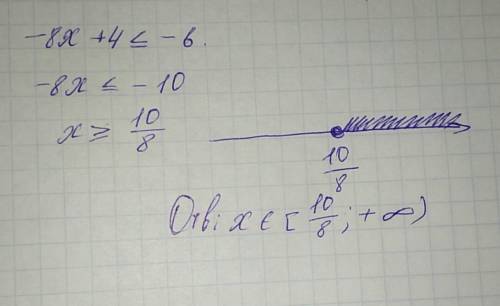 -8x +4 ≤ -6.
-8x ≤ -10
x ≥ 10/8
10/8
Отв: x ∈ [10/8; +∞)